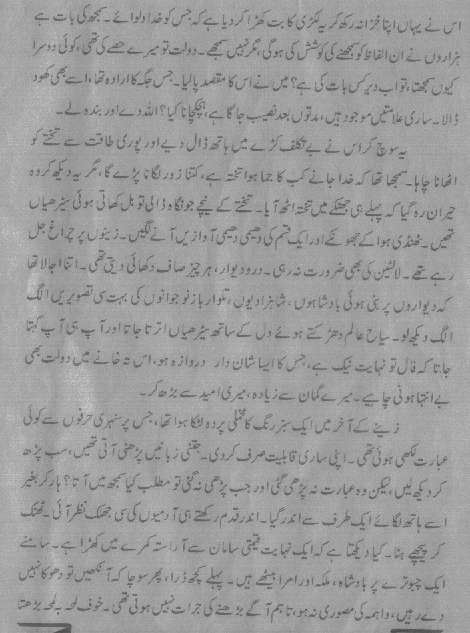 اس نے یہاں اپنا خزانہ رکھ کر یہ لکڑی کا بت کھڑا کر دیا ہے کہ جس کو خدا دلوائے۔ سمجھ کی بات ہے
ہزاروں نے ان الفاظ کو سمجھنے کی کوشش کی ہوگی، مگر نہیں سمجھے۔ دولت تو میرے حصے کی تھی، کوئی دوسرا
کیوں سمجھتا، تو اب دیر کس بات کی ہے؟ میں نے اس کا مقصد پا لیا۔ جس جگہ کا ارادہ تھا، اسے بھی کھود
ڈالا۔ ساری علامتیں موجود ہیں، مدتوں بعد نصیب جاگا ہے، ہچکچانا کیا؟ اللہ دے اور بندہ لے۔
یہ سوچ کر اس نے بے تکلف کڑے میں ہاتھ ڈال دیے اور پوری طاقت سے تختے کو
اٹھانا چاہا۔ سمجھا تھا کہ خدا جانے کب کا جما ہوا تختہ ہے، کتنا زور لگانا پڑے گا، مگر یہ دیکھ کر وہ
حیران رہ گیا کہ پہلے ہی جھٹکے میں تختہ اٹھ آیا۔ تختے کے نیچے جو نگاہ ڈالی تو بل کھاتی ہوئی سیڑھیاں
تھیں۔ ٹھنڈی ہوا کے جھونکے اور ایک قسم کی دھیمی دھیمی آوازیں آنے لگیں۔ زینوں پر چراغ جل
رہے تھے۔ لالٹین کی بھی ضرورت نہ رہی۔ در و دیوار، ہر چیز صاف دکھائی دیتی تھی۔ اتنا اجالا تھا
کہ دیواروں پر بنی ہوئی بادشاہوں، شاہزادیوں، تلوار باز نوجوانوں کی بہت سی تصویریں الگ
الگ دیکھ لو۔ سیاح عالم دھڑکتے ہوئے دل کے ساتھ سیڑھیاں اترتا جاتا اور آپ ہی آپ کہتا
جاتا کہ فال تو نہایت نیک ہے، جس کا ایسا شان دار دروازہ ہو، اس تہ خانے میں دولت بھی
بے انتہا ہونی چاہیے۔ میرے گمان سے زیادہ، میری امید سے بڑھ کر۔
زینے کے آخر میں ایک سبز رنگ کا مخملی پردہ لٹکا ہوا تھا، جس پر سنہری حرفوں سے کوئی
عبارت لکھی ہوئی تھی۔ اپنی ساری قابلیت صرف کر دی۔ جتنی زبانیں پڑھنی آتی تھیں، سب پڑھ
کر دیکھ لیں، لیکن وہ عبارت نہ پڑھی گئی اور جب پڑھی نہ گئی تو مطلب کیا سمجھ میں آتا؟ ہار کر بغیر
اسے ہاتھ لگائے ایک طرف سے اندر گیا۔ اندر قدم رکھتے ہی آدمیوں کی سی جھلک نظر آئی۔ ٹھٹک
کر پیچھے ہٹا۔ کیا دیکھتا ہے کہ ایک نہایت قیمتی سامان سے آراستہ کمرے میں کھڑا ہے۔ سامنے
ایک چبوترے پر بادشاہ، ملکہ اور امرا بیٹھے ہیں۔ پہلے کچھ ڈرا، پھر سوچا کہ آنکھیں تو دھوکا نہیں
دے رہیں، واہمہ کی مصوری نہ ہو، تاہم آگے بڑھنے کی جرات نہیں ہوتی تھی۔ خوف لمحہ بہ لمحہ بڑھتا